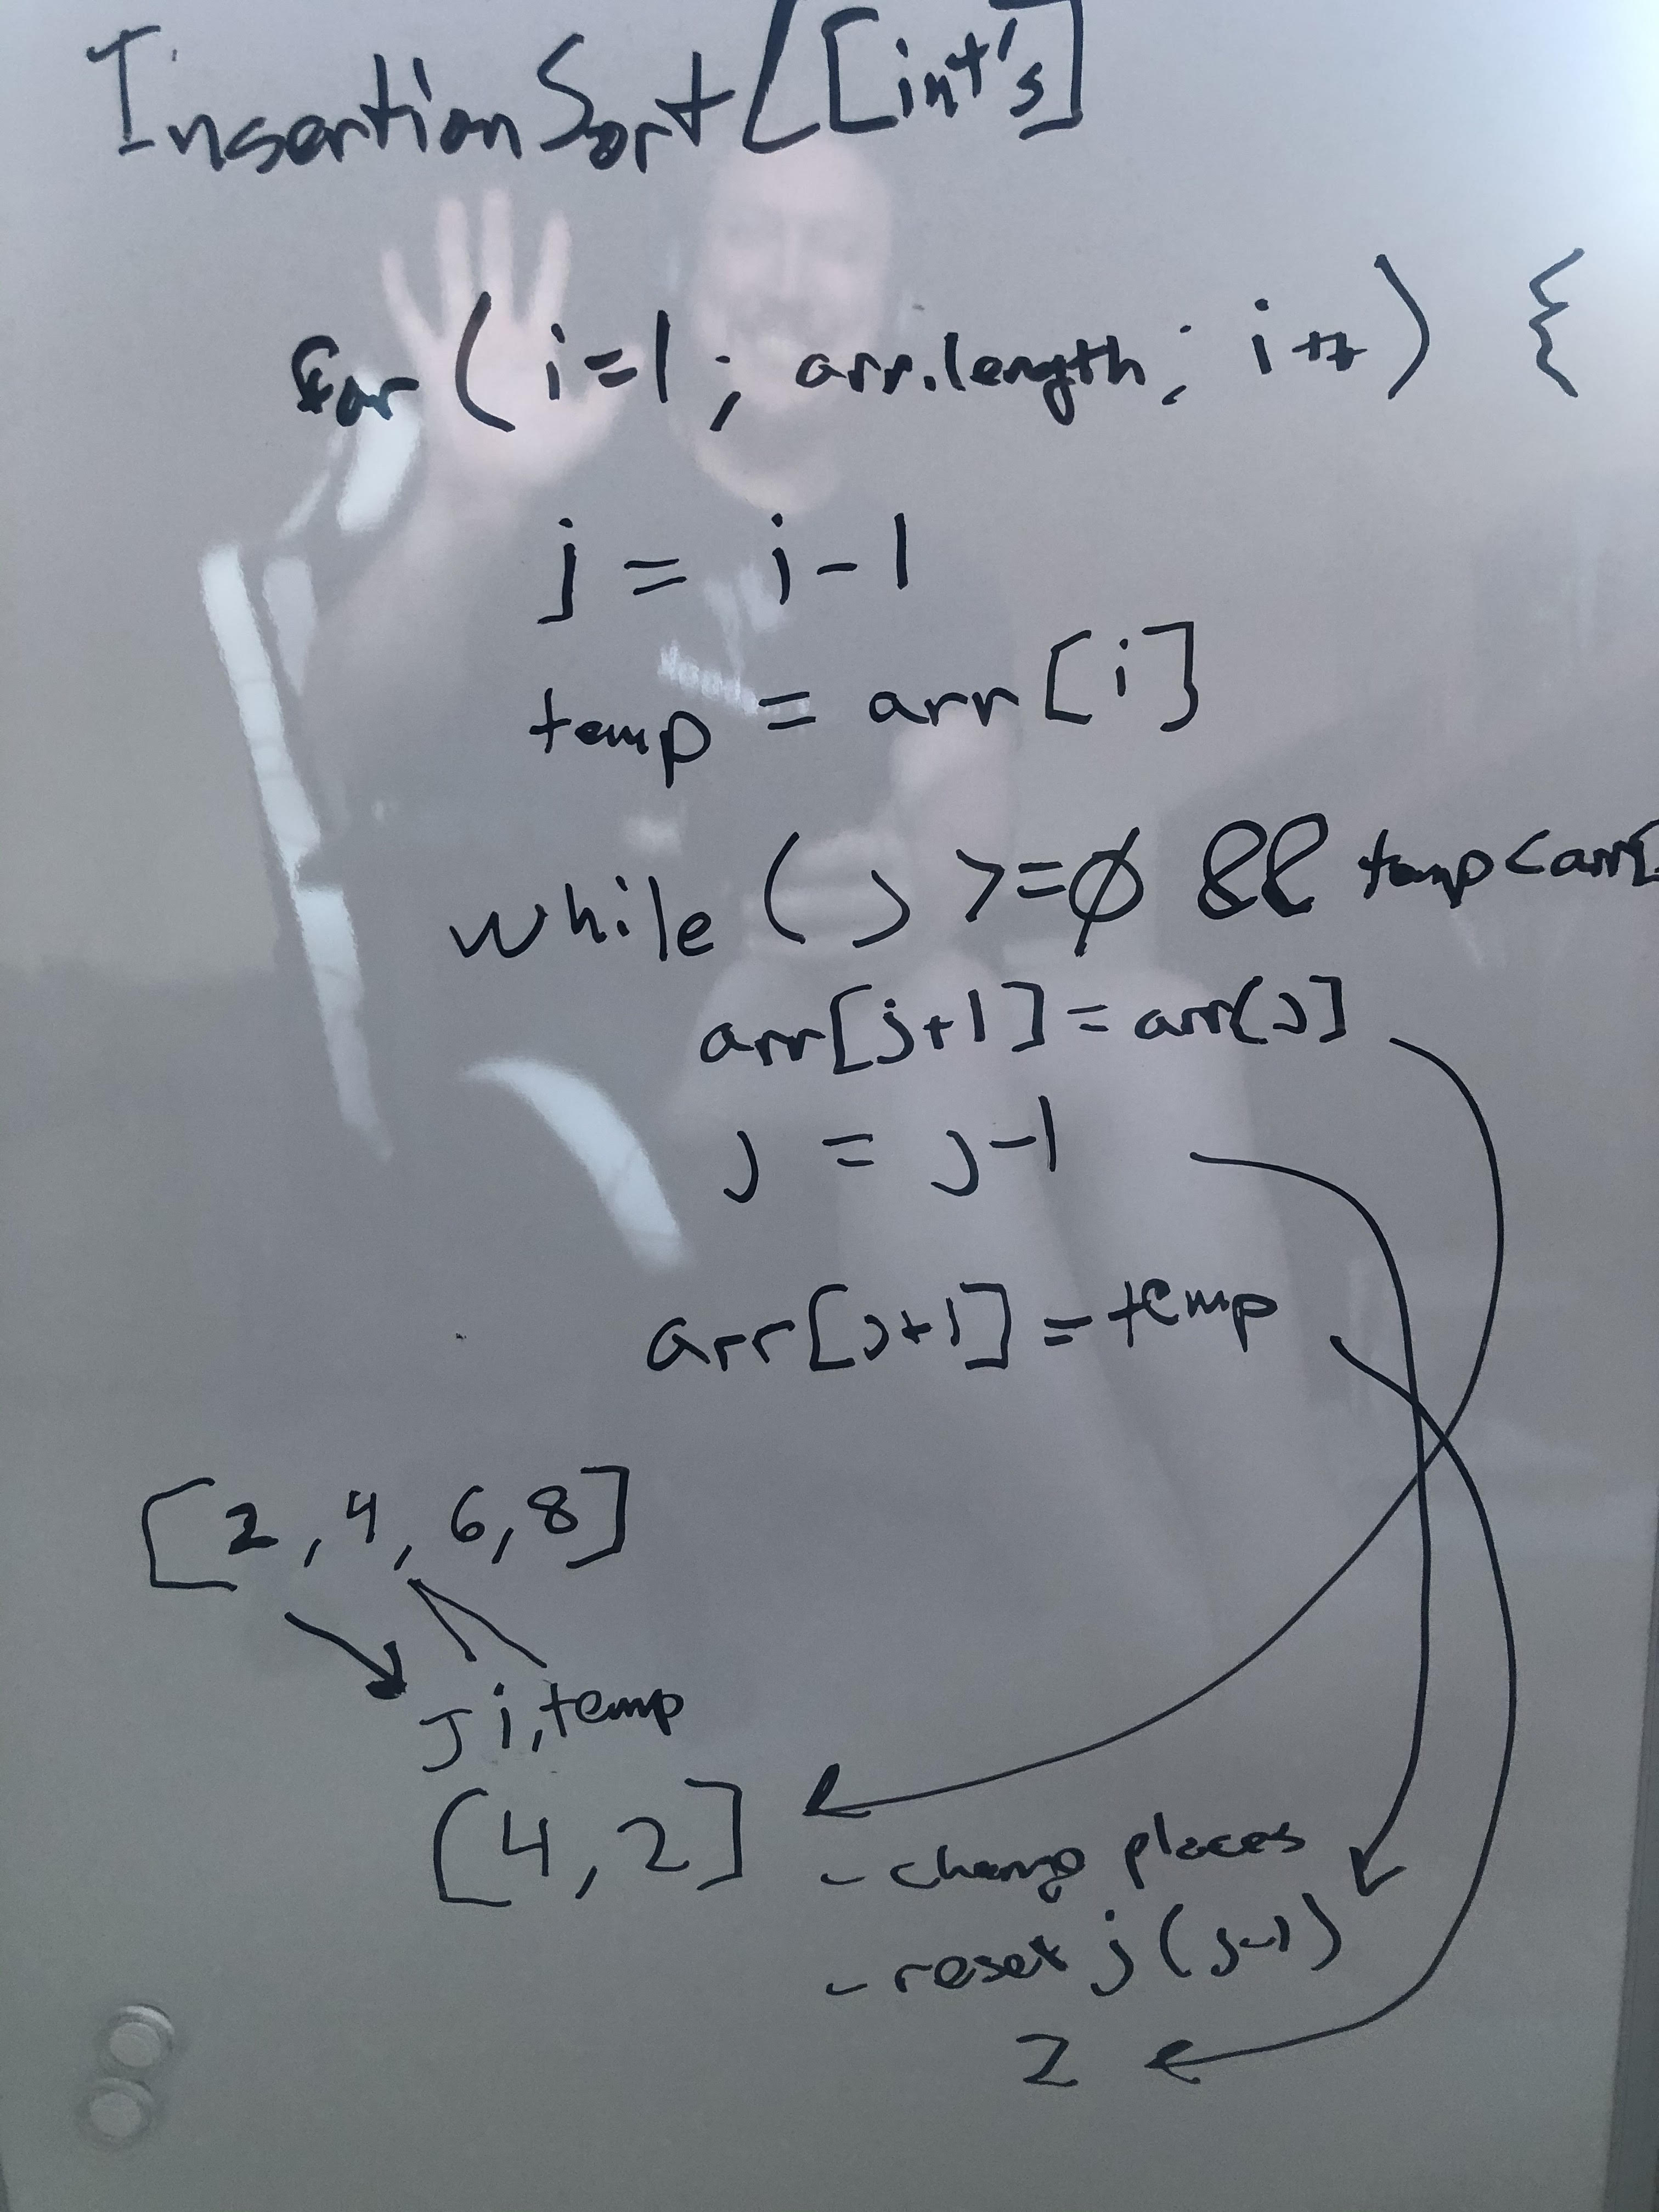 InsertionSort[[int's]
for ( i=1 ; arr.length; i++) {
j = i-1
temp = arr[i]
while (j >=0 && temp<arr[
arr[j+1]=arr[j]
j = j-1
arr[j+1]=temp
[2,4,6,8]
j i,temp
[4,2]
- change places
- reset j (j-1)
2